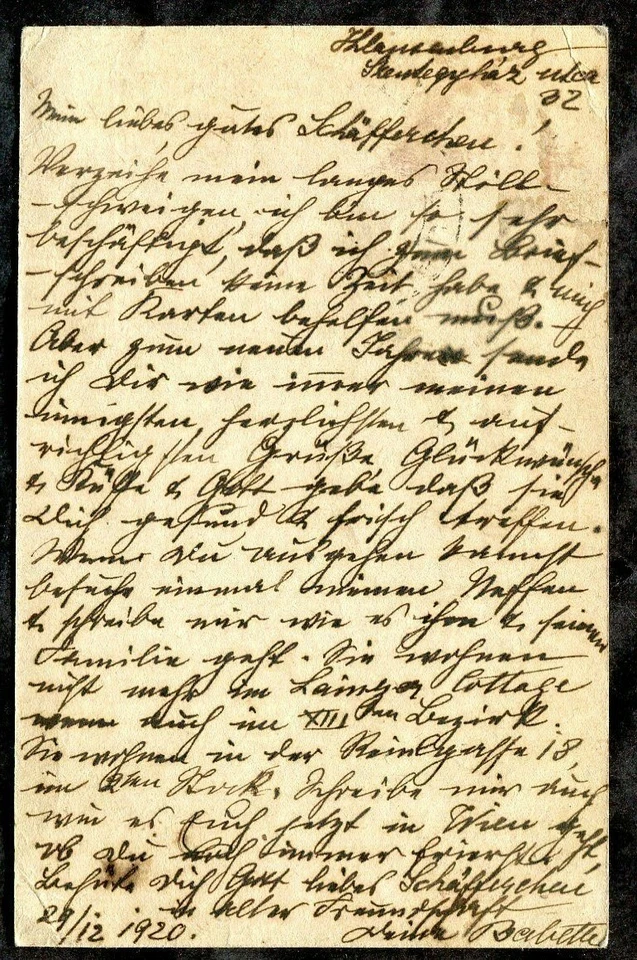 Klausenburg
Szentegyház utca
32
Mein liebes, gutes Schäfferchen!
Verzeihe mein langes Still-
-schweigen, ich bin so sehr
beschäftigt, daß ich zum Brief-
-schreiben keine Zeit habe & mich
mit Karten behelfen muß.
Aber zum neuen Jahre sende
ich Dir wie immer meinen
innigsten, herzlichsten & auf-
richtigsten Grüße, Glückwünsche
& Küsse & Gott gebe daß sie
Dich gesund & frisch treffen.
Wenn Du ausgehen kannst
besuche einmal meinen Neffen
& schreibe mir wie es ihm & seiner
Familie geht. Sie wohnen
nicht mehr im Lainzer Cottage
wenn auch im XIII ten Bezirk.
Sie wohnen in der 18,
im 2ten Stock. Schreibe mir auch
wie es Euch jetzt in Wien geht,
ob Du noch immer
Behüte Dich Gott liebes Schäfferchen
in alter Freundschaft
29/12 1920. Deine Babette